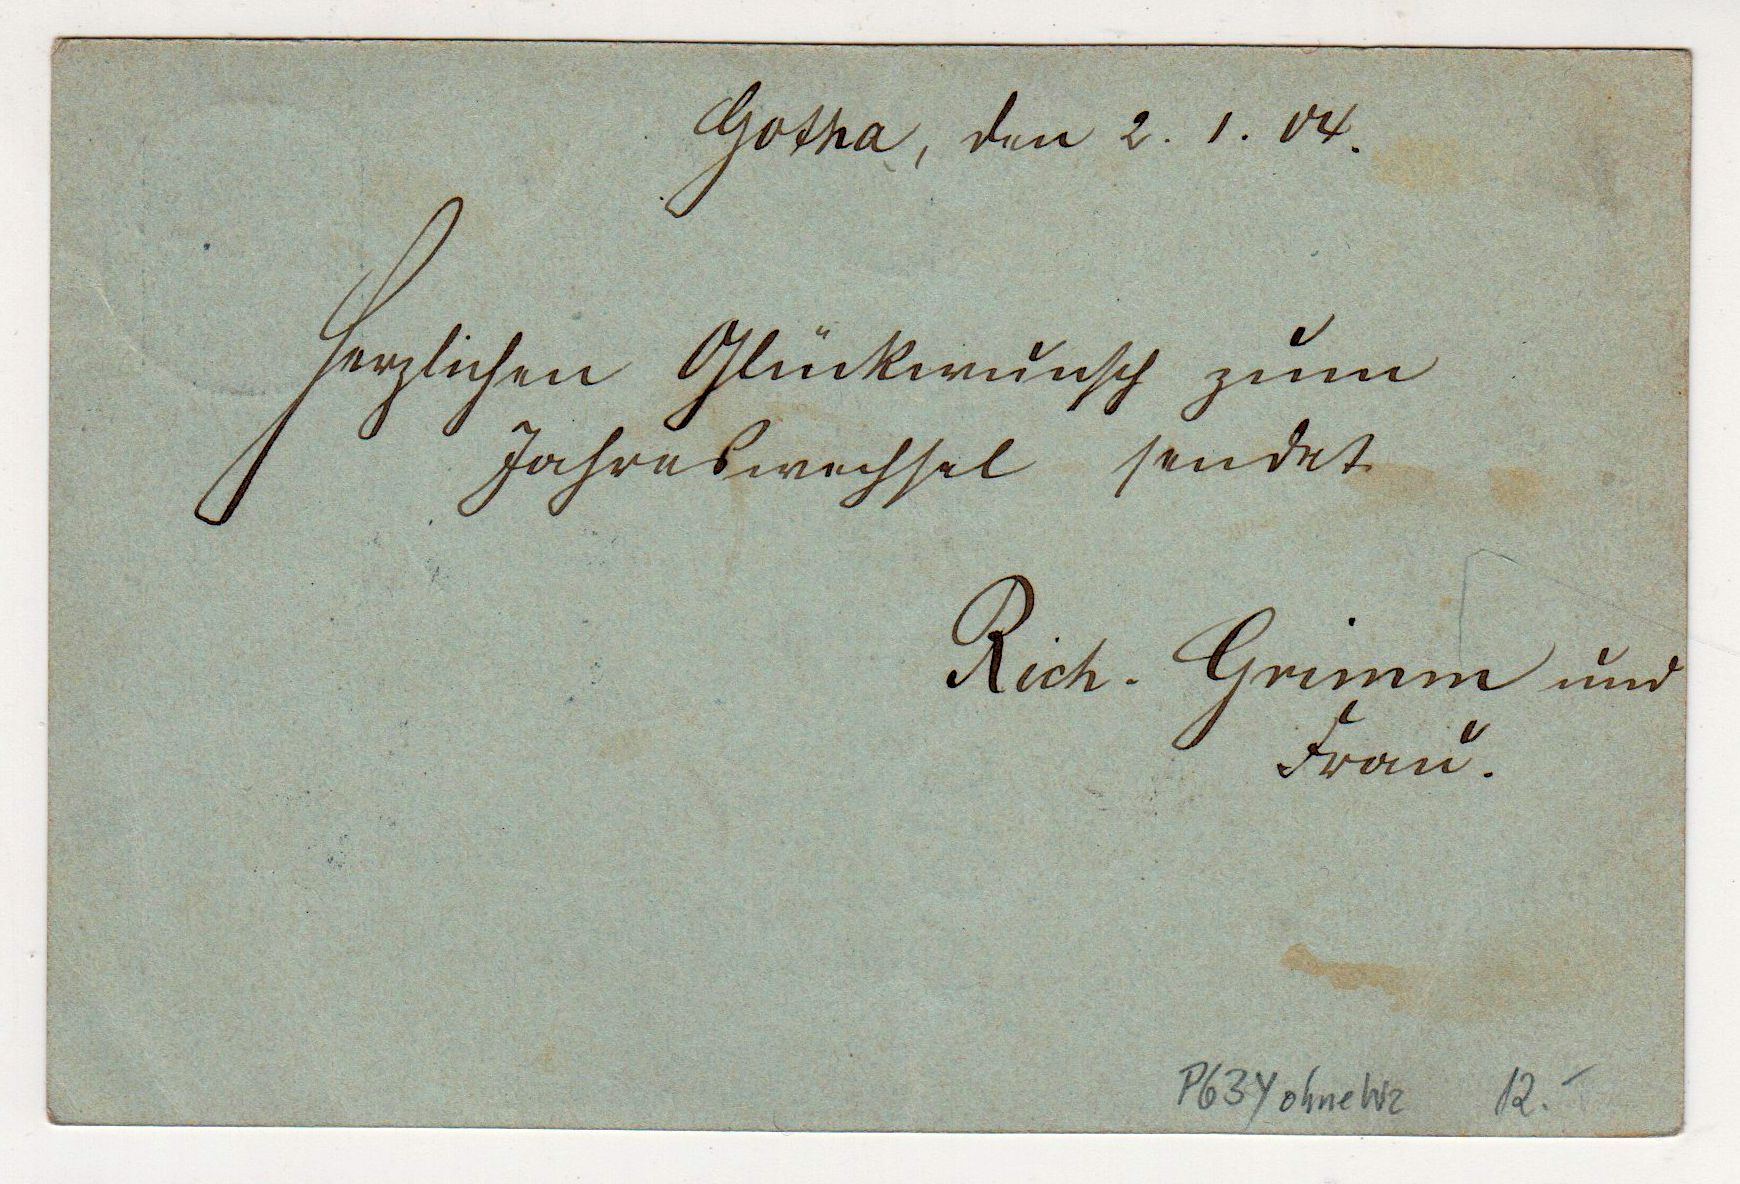 Gotha, den 2. 1. 04.
Herzlichen Glückwunsch zum
Jahreswechsel sendet
Rich. Grimm und
Frau.
P63Y ohne Wz 12.-